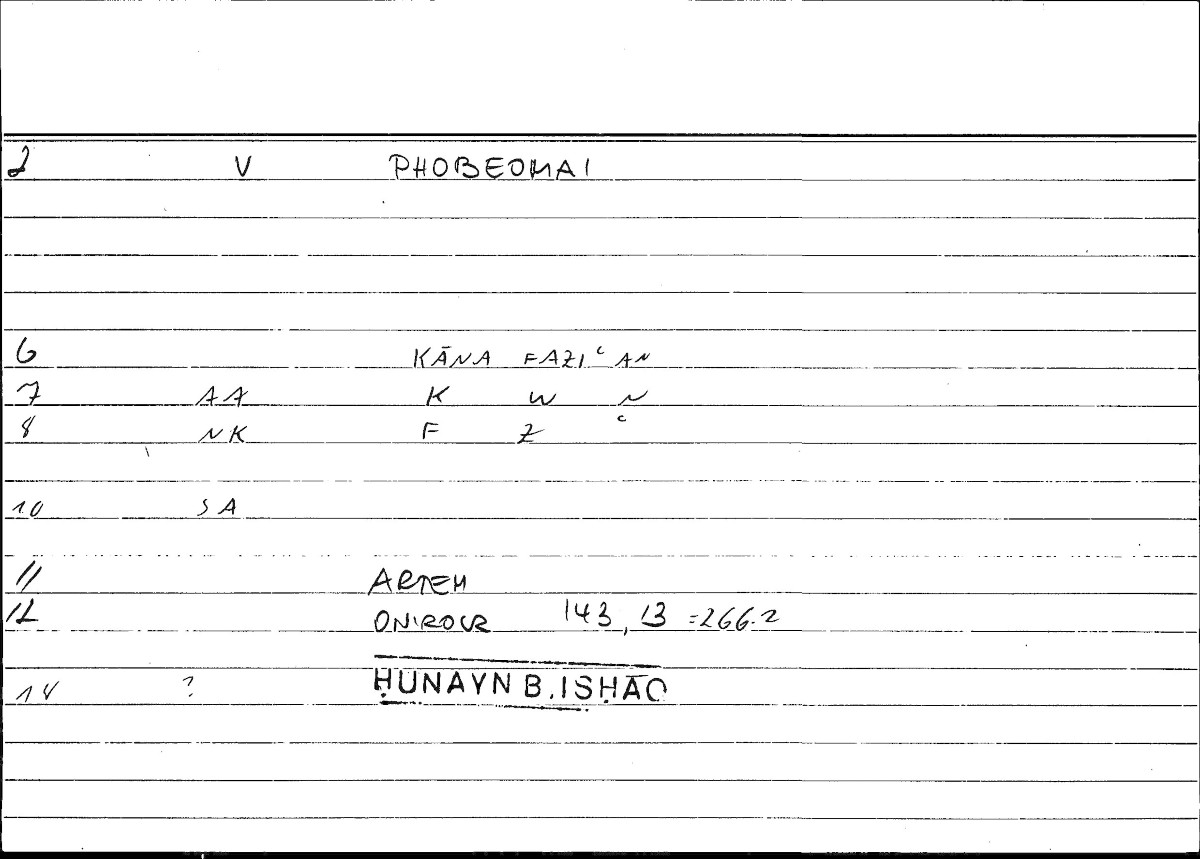 2 V PHOBEOMAI
6 KĀNA FAZIʿAN
7 AA K W N
8 NK F Z ʿ
10 SA
11 ARTEM
12 ONIROCR 143,13 =266.2
14 ? ḤUNAYN B. ISḤĀQ